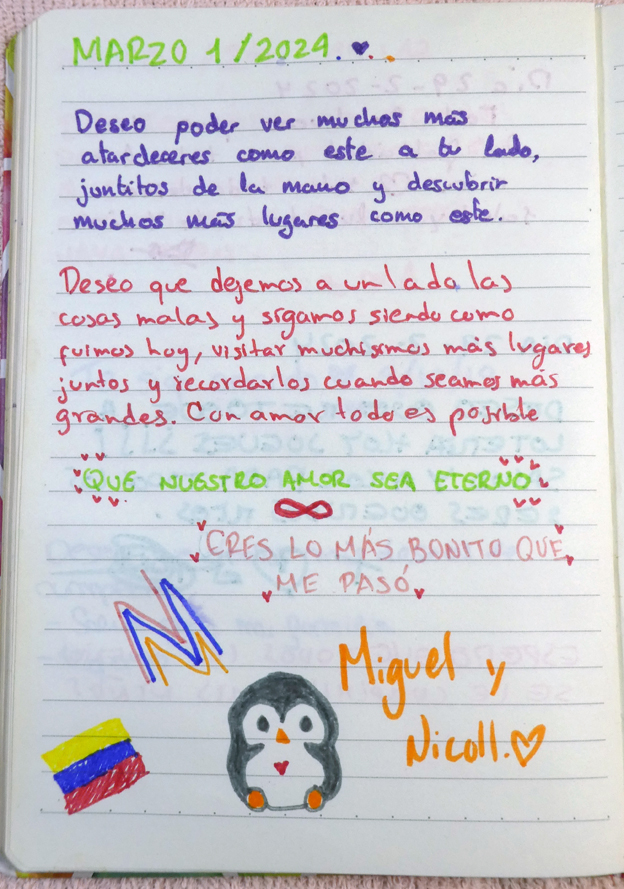 MARZO 1/2024.
Deseo poder ver muchos más
atardeceres como este a tu lado,
juntitos de la mano y descubrir
muchos más lugares como este.
Deseo que dejemos a un lado las
cosas malas y sigamos siendo como
fuimos hoy, visitar muchísimos más lugares
juntos y recordarlos cuando seamos más
grandes. Con amor todo es posible
QUE NUESTRO AMOR SEA ETERNO
ERES LO MÁS BONITO QUE
ME PASÓ
Miguel y
Nicoll.